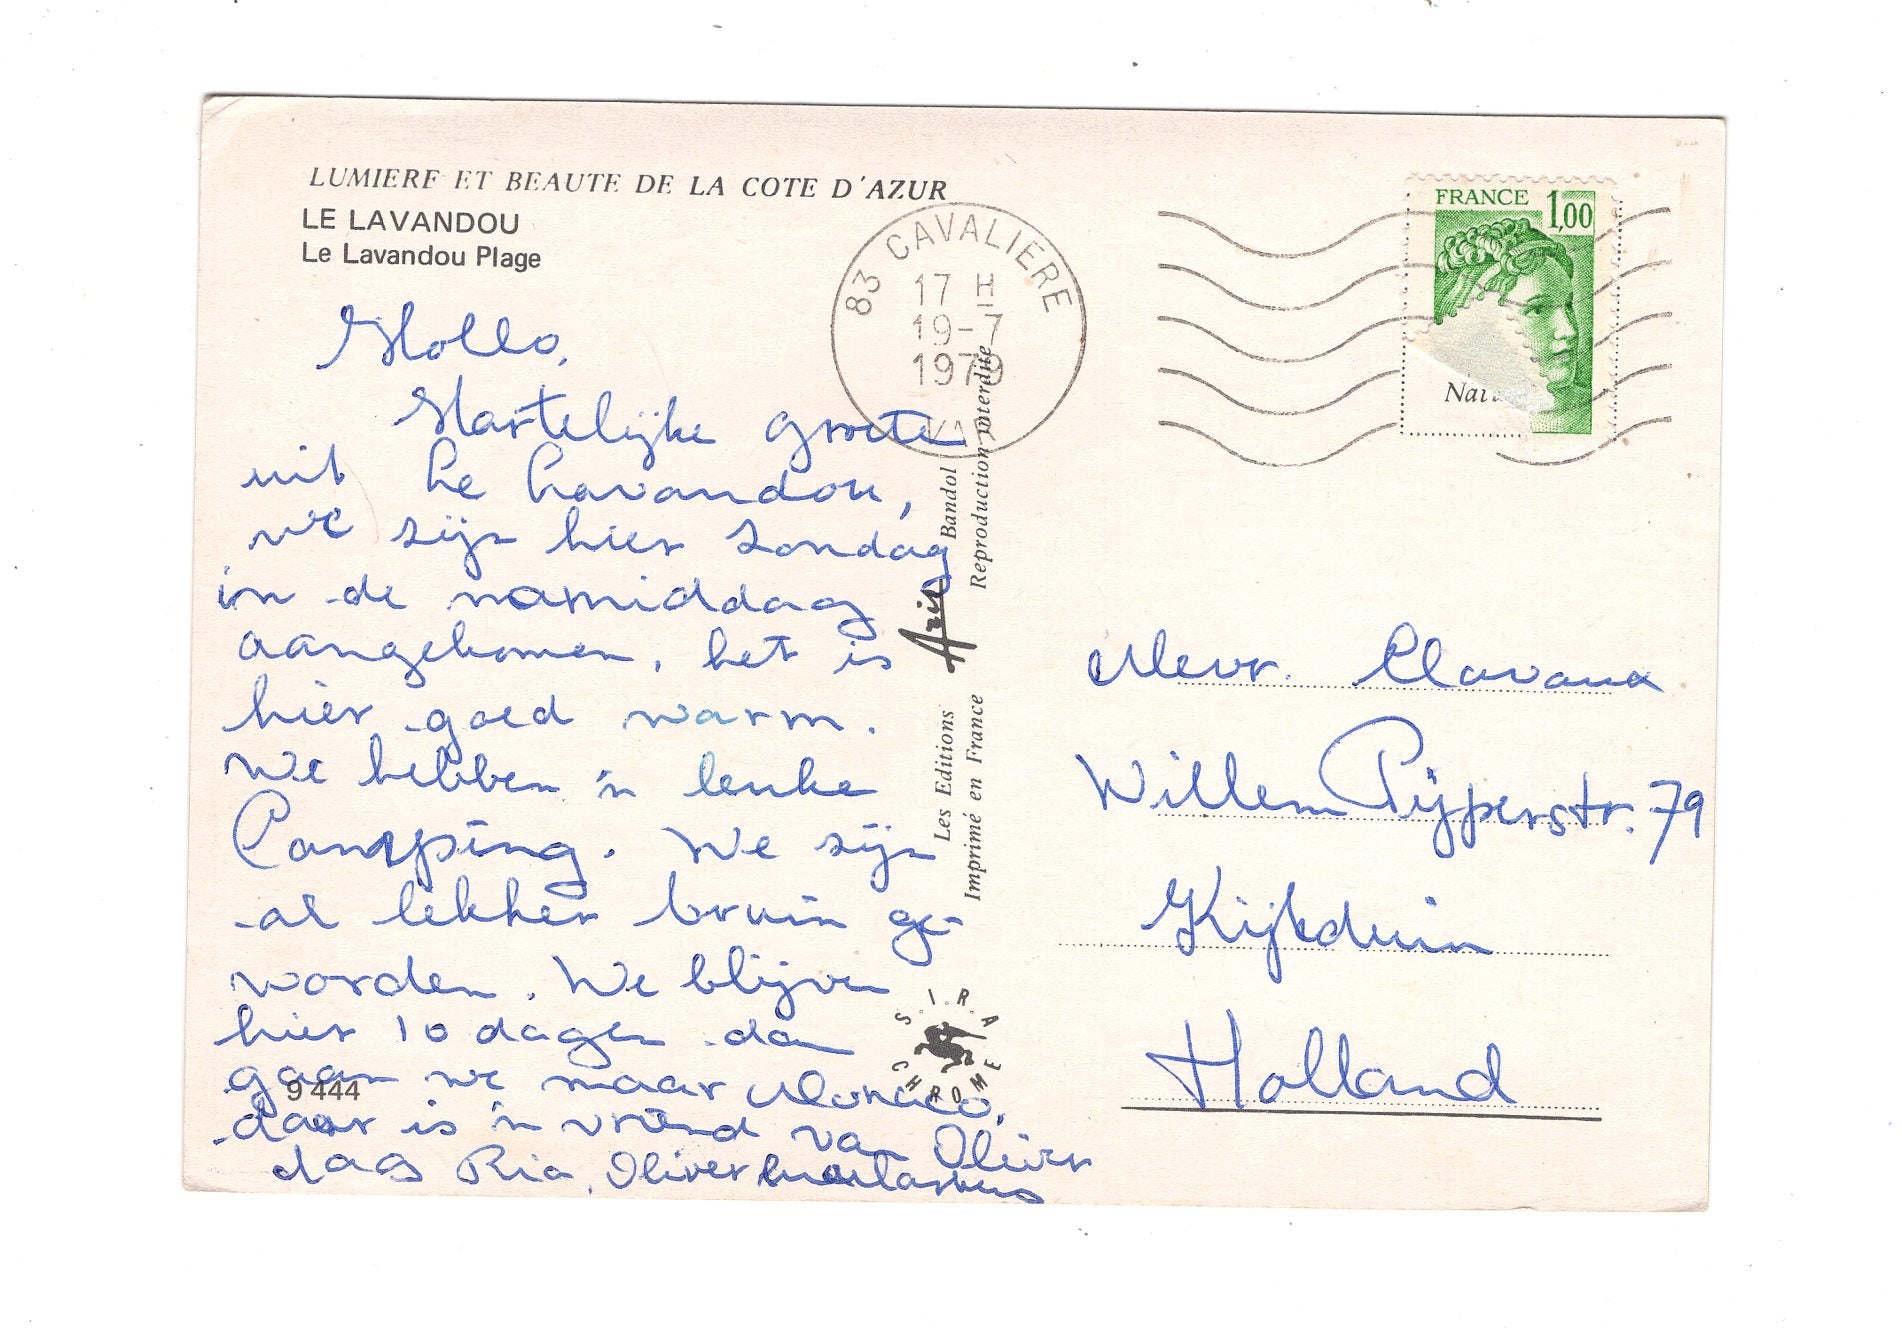 LUMIERE ET BEAUTE DE LA COTE D'AZUR
LE LAVANDOU
Le Lavandou Plage
83 CAVALIERE
17 H
19-7
1979
VAR
FRANCE 1,00
Hallo,
Hartelijke groete
uit Le Lavandou,
we zijn hier Zondag
in de namiddag
aangekomen, het is
hier goed warm.
We hebben 'n leuke
Camping. We zijn
al lekker bruin ge-
worden. We blijven
hier 10 dagen dan
gaan we naar Monaco,
daar is 'n vriend van Olivier
dag Ria, Oliver
9 444
Les Editions Aris Bandol
Imprimé en France Reproduction interdite
S.I.R.A
CHROME
Mevr.
Willem Pijperstr. 79
Kijkduin
Holland